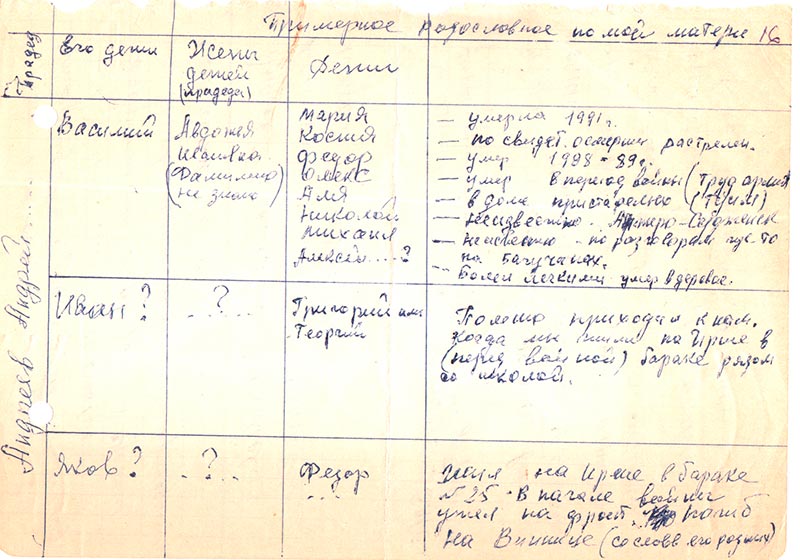 Примерное родословное по моей матери 16
Прадед
Его дети
Жены
детей
(прадеда)
Дети
Андреев Андрей......
Василий
Авдожея
Ивановна
(Фамилию
не знаю)
Мария
Костия
Федор
Олекс
Аля
Николай
Михаил
Алексей....?
— умерла 1991г.
— по свидет. растрелен.
— умер 1988-89г.
— умер в период войны (труд армия)
— в доме престарелых
— неизвестно. Анжеро-Суджинск
— неизвестно - по разговорам где то
на
— Болел легкими умер в деревне.
Иван?
..?..
Григорий или
Георгий
Помню приходил к нам.
когда мы жили на Ирше в
(перед войной) бараке рядом
со школой.
Яков?
..?..
Федор
....
жил на Ирше в бараке
№25. В начале войны
ушел на фронт. погиб
на (со слов его родных)